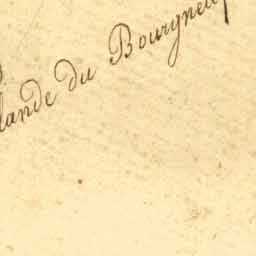 lande du Bourgneuf